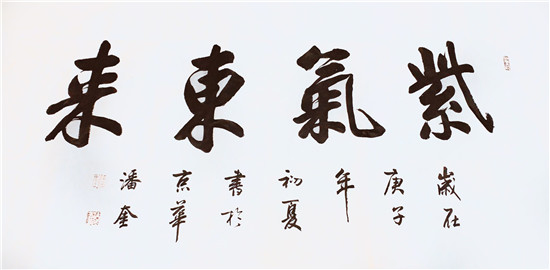 紫氣東来
歲在
庚子
年
初夏
書於
京華
潘奎